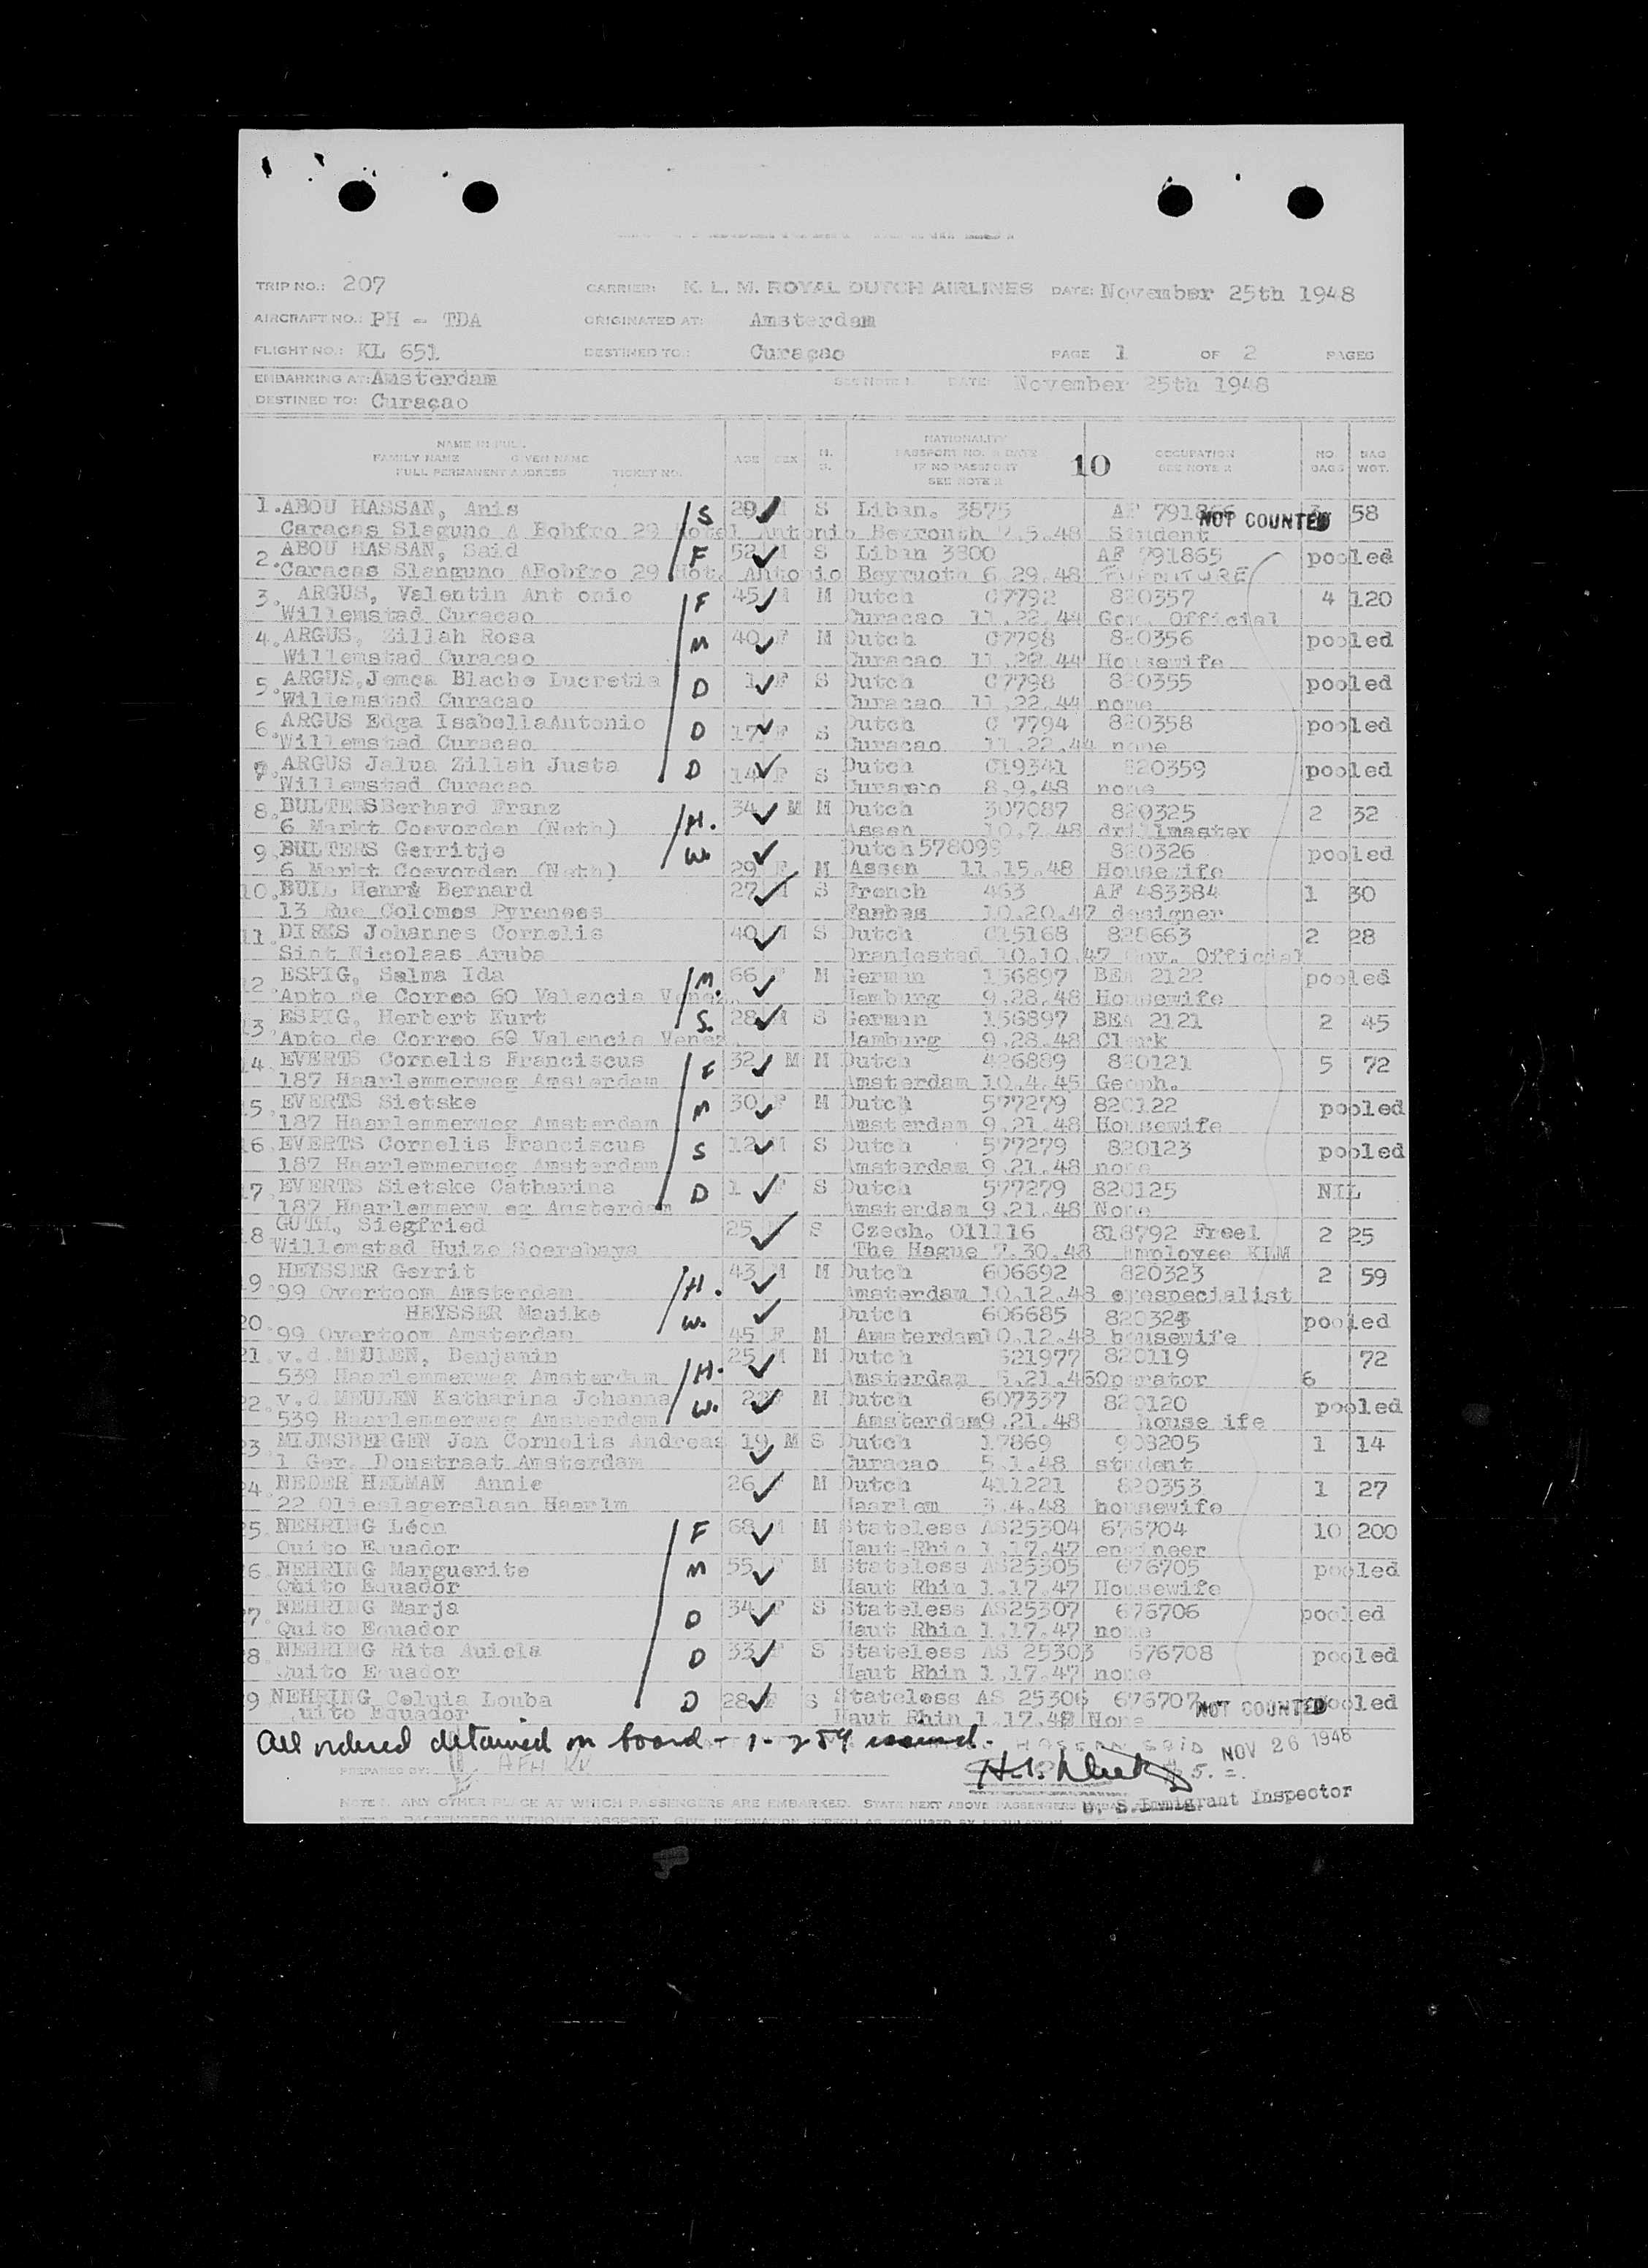 TRIP NO.: 207 CARRIER: K. L. M. ROYAL DUTCH AIRLINES DATE: November 25th 1948
AIRCRAFT NO.: PH - TDA ORIGINATED AT: Amsterdam
FLIGHT NO.: KL 651 DESTINED TO: Curaçao PAGE 1 OF 2 PAGES
EMBARKING AT: Amsterdam SEE NOTE 1. DATE: November 25th 1948
DESTINED TO: Curaçao
NAME IN FULL NATIONALITY
FAMILY NAME GIVEN NAME AGE SEX PASSPORT NO. & DATE 10 OCCUPATION NO. BAG
FULL PERMANENT ADDRESS TICKET NO. IF NO PASSPORT SEE NOTE 2 BAGS WGT.
SEE NOTE 2
1. ABOU HASSAN, Anis / S S Liban. 3875 NOT COUNTED 58
Caracas Slaguno A Bobfro 29 Hotel Antonio Beyrouth 7.5.48 Student
2. ABOU HASSAN, Said F 52 M S Liban 3800 AF 791865 pooled
Caracas Slanguno ABobfro 29 Hot. Antonio Beyruoth 6.29.48 FURNITURE
3. ARGUS, Valentin Ant onio / F 45 M M Dutch C7792 820357 4 120
Willemstad Curacao Curacao 11.22.44 Gov. Official
4. ARGUS, Zillah Rosa M 40 F M Dutch C7798 820356 pooled
Willemstad Curacao Curacao 11.22.44 Housewife
5. ARGUS, Jemca Blache Lucretia D 1 F S Dutch C7798 820355 pooled
Willemstad Curacao Curacao 11.22.44 none
6. ARGUS Edga IsabellaAntonio D 17 F S Dutch C 7794 820358 pooled
Willemstad Curacao Curacao 11.22.44 none
7. ARGUS Jalua Zillah Justa D 14 F S Dutch C19341 820359 pooled
Willemstad Curacao Curacao 8.9.48 none
8. BULTERS Berhard Franz / H. 34 M M Dutch 307087 820325 2 32
6 Markt Coevorden (Neth) Assen 10.7.48 drillmaster
9. BULTERS Gerritje W. Dutch 578098 820326 pooled
6 Markt Coevorden (Neth) 29 F M Assen 11.15.48 Housewife
10. BUIL Henri Bernard 27 M S French 463 AF 483384 1 30
13 Rue Colomes Pyrenees 10.20.47 designer
11. DIRKS Johannes Cornelis 40 M S Dutch C15168 2 28
Sint Nicolaas Aruba Oranjestad 10.10.47 Gov. Official
12. ESPIG, Selma Ida / M. 66 F M German 156897 BEA 2122 pooled
Apto de Correo 60 Valencia Venez. Hamburg 9.28.48 Housewife
13. ESPIG, Herbert Kurt S. 28 M S German 156897 BEA 2121 2 45
Apto de Correo 60 Valencia Venez. Hamburg 9.28.48 Clerk
14. EVERTS Cornelis Franciscus / F 32 M M Dutch 426889 820121 5 72
187 Haarlemmerweg Amsterdam Amsterdam 10.4.45 Geoph.
15. EVERTS Sietske M 30 F M Dutch 577279 820122 pooled
187 Haarlemmerweg Amsterdam Amsterdam 9.21.48 Housewife
16. EVERTS Cornelis Franciscus S 12 M S Dutch 577279 820123 pooled
187 Haarlemmerweg Amsterdam Amsterdam 9.21.48 none
17. EVERTS Sietske Catharina D 1 F S Dutch 577279 820125 NIL
187 Haarlemmerw eg Amsterdam Amsterdam 9.21.48 None
18 GUTH, Siegfried 25 S Czech. 011116 818792 Freel 2 25
Willemstad Huize Soerabaya The Hague 7.30.48 Employee KLM
19 HEYSSER Gerrit / H. 43 M M Dutch 606692 820323 2 59
99 Overtoom Amsterdam Amsterdam 10.12.48
20. HEYSSER Maaike W. Dutch 606685 820324 pooled
99 Overtoom Amsterdam 45 F M Amsterdam10.12.48 housewife
21. v.d.MEULEN, Benjamin / H. 25 M M Dutch 820119 72
539 Haarlemmerweg Amsterdam Amsterdam Operator 6
22. v.d.MEULEN Katharina Johanna W. M Dutch 607337 820120 pooled
539 Haarlemmerweg Amsterdam Amsterdam9.21.48 house ife
23. MIJNSBERGEN Jan Cornelis Andreas 19 M S Dutch 17869 908205 1 14
1 Ger. Doustraat Amsterdam Curacao 5.1.48 student
24. NEDER HELMAN Annie 26 F M Dutch 411221 820353 1 27
22 Olieslagerslaan Haarlm Haarlem 3.4.48 housewife
25. NEHRING Léon / F 68 M M Stateless AS25304 676704 10 200
Quito Equador Haut Rhin 1.17.47 engineer
26. NEHRING Marguerite M 55 F M Stateless AS25305 676705 pooled
Quito Equador Haut Rhin 1.17.47 Housewife
27. NEHRING Marja D 34 F S Stateless AS25307 676706 pooled
Quito Equador Haut Rhin 1.17.47 none
28. NEHRING Rita Auiela D 33 F S Stateless AS 25303 676708 pooled
Quito Equador Haut Rhin 1.17.47 none
29 NEHRING Celuia Louba D 28 F S Stateless AS 25306 676707 NOT COUNTED pooled
Quito Equador Haut Rhin 1.17.48 None
All ordered detained on board - 1-259 issued. HASSAN SAID NOV 26 1948
PREPARED BY:
U. S. Immigrant Inspector
NOTE 1. ANY OTHER PLACE AT WHICH PASSENGERS ARE EMBARKED. STATE NEXT ABOVE PASSENGERS